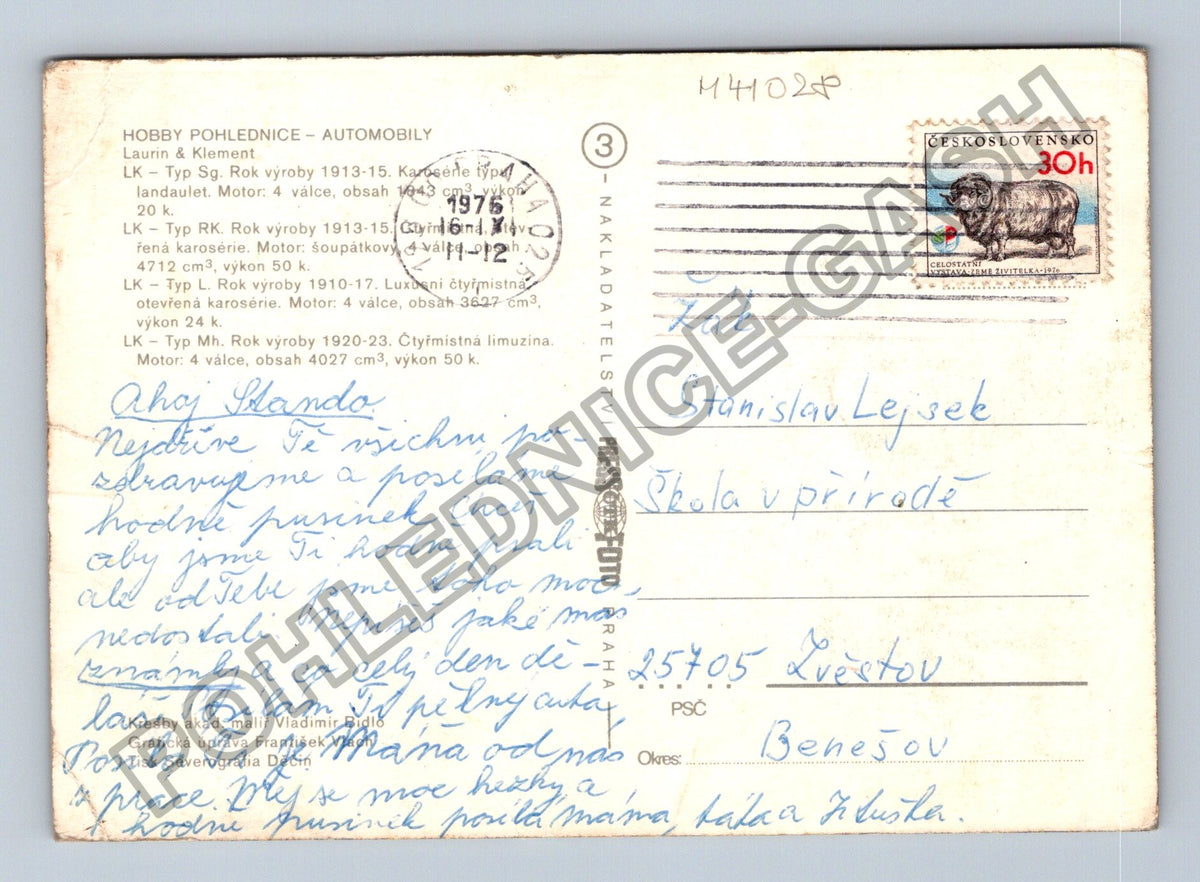 M41028
HOBBY POHLEDNICE – AUTOMOBILY
Laurin & Klement
LK – Typ Sg. Rok výroby 1913-15. Karosérie typu
landaulet. Motor: 4 válce, obsah 1943 cm³, výkon
20 k.
LK – Typ RK. Rok výroby 1913-15. Čtyřmístná, otev-
řená karosérie. Motor: šoupátkový, 4 válce, obsah
4712 cm³, výkon 50 k.
LK – Typ L. Rok výroby 1910-17. Luxusní čtyřmístná
otevřená karosérie. Motor: 4 válce, obsah 3627 cm³,
výkon 24 k.
LK – Typ Mh. Rok výroby 1920-23. Čtyřmístná limuzina.
Motor: 4 válce, obsah 4027 cm³, výkon 50 k.
PRAHA 025
1976
16.IX
11-12
Ahoj Stando.
Nejdříve Tě všichni po-
zdravujeme a posíláme
hodně pusinek. Chceš
aby jsme Ti hodně psali
ale od Tebe jsme toho moc
nedostali. Nepíšeš jaké máš
známky a co celý den dě-
láš. Posílám Ti pěkný auta,
je Máňa od nás
z práce. Měj se moc hezky a
hodně pusinek posílá máma, táta a Jituška.
Kresby akad. malíř Vladimír Bidlo
Grafická úprava František Vlach
Tisk Severografia Děčín
3 - NAKLADATELSTVÍ
PRESSFOTO
PRAHA
ČESKOSLOVENSKO
30h
CELOSTÁTNÍ
VÝSTAVA ZEMĚ ŽIVITELKA-1976
Žák
Stanislav Lejsek
Škola v přírodě
25705 Zvěstov
PSČ
Okres: Benešov
POHLEDNICE-GASH